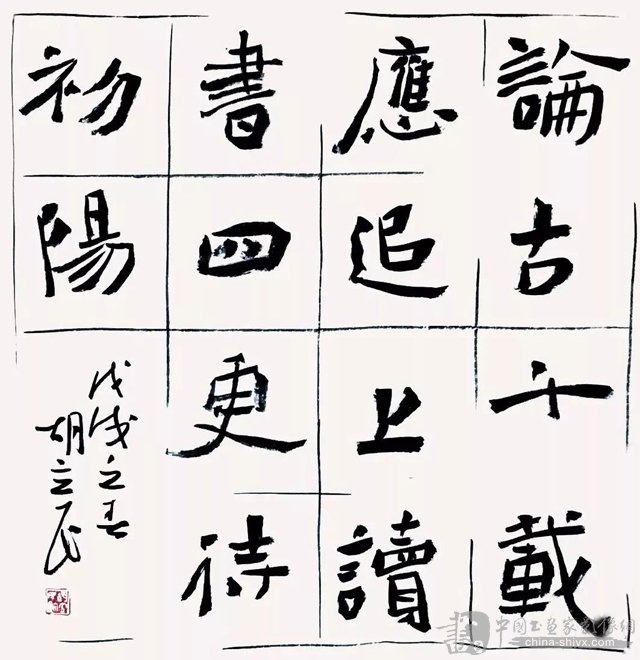 論古千載
應追上讀
書四更待
初陽
戊戌之春
胡立民
中国书画家影像網
china-shivx.com